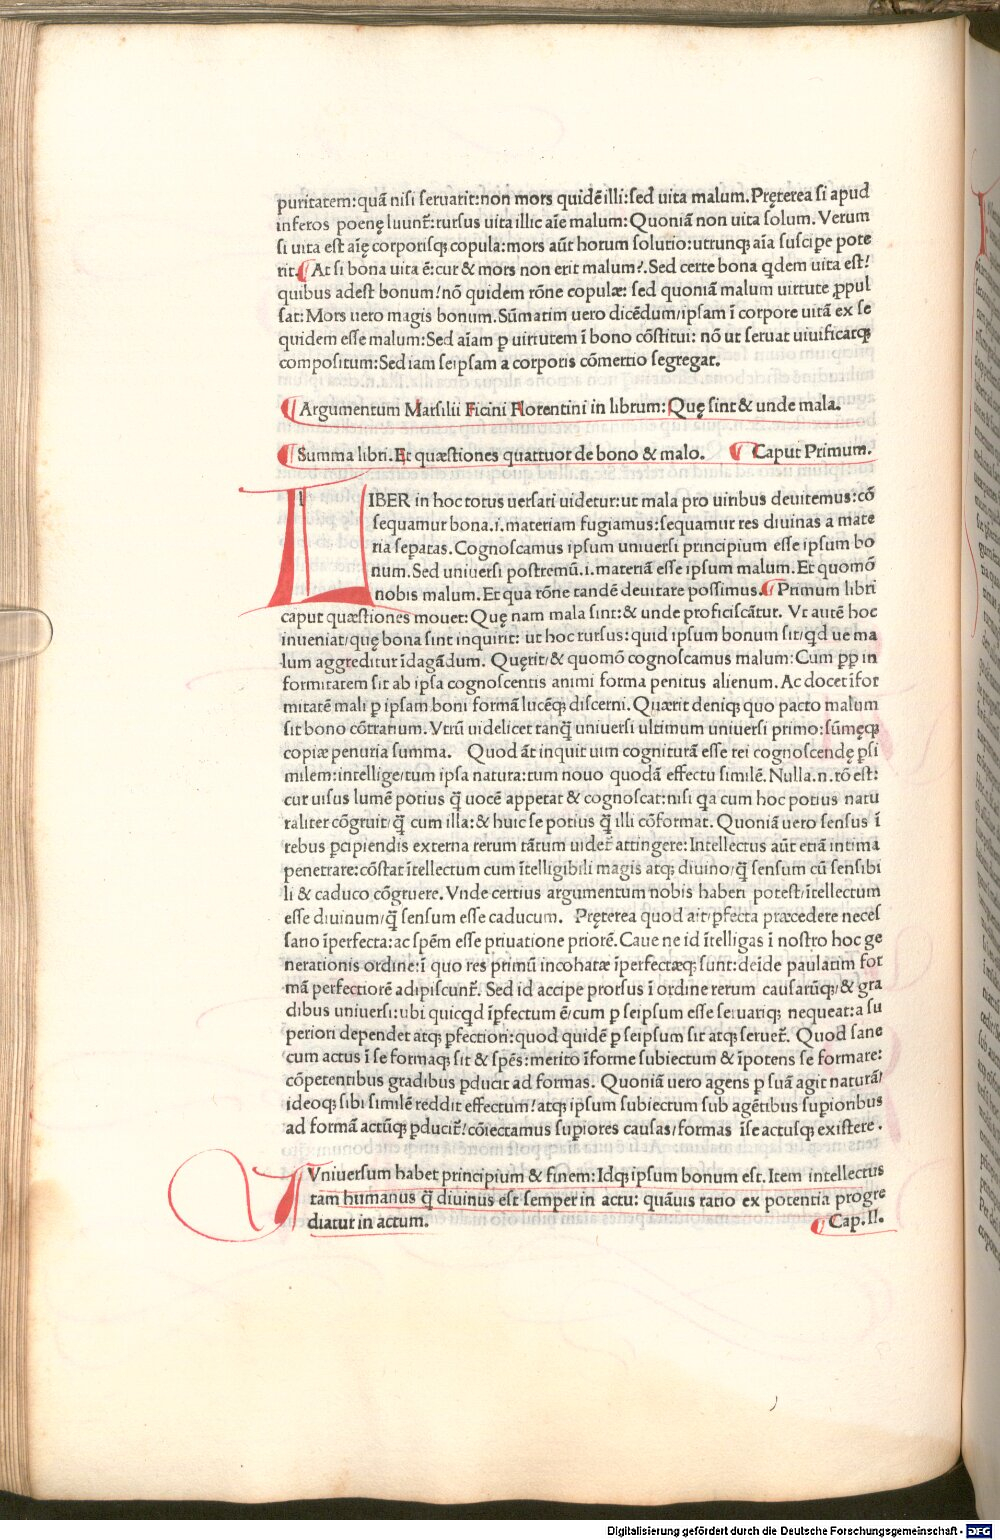 puritatem:quā nisi seruarit:non mors quidē illi:sed uita malum.Pręterea si apud
inferos poenę luunt᷑:rursus uita illic aīe malum:Quoniā non uita solum. Verum
si uita est aīę corporisq; copula:mors aūt horum solutio:utrunq; aīa suscipe pote
rit.¶At si bona uita ē:cur & mors non erit malum?.Sed certe bona qdem uita est/
quibus adest bonum/nō quidem rōne copulæ: sed quoniā malum uirtute ꝓpul
sat:Mors uero magis bonum.Sūmatim uero dicēdum/ipsam ī corpore uitā ex se
quidem esse malum:Sed aīam ꝑ uirtutem ī bono cōstitui: nō ut seruat uiuificatq;
compositum:Sed iam seipsam a corporis cōmertio segregat.
¶Argumentum Marsilii Ficini Florentini in librum:Quę sint & unde mala.
¶Summa libri.Et quæstiones quattuor de bono & malo. ¶Caput Primum.
LIBER in hoc totus uersari uidetur:ut mala pro uiribus deuitemus:cō
sequamur bona.i.materiam fugiamus:sequamur res diuinas a mate
ria separatas.Cognoscamus ipsum uniuersi principium esse ipsum bo
num.Sed uniuersi postremū.i.materiā esse ipsum malum.Et quomō
nobis malum.Et qua rōne tandē deuitare possimus.¶Primum libri
caput quæstiones mouet:Quę nam mala sint:& unde proficiscātur. Vt autē hoc
inueniat/quę bona sint inquirit: ut hoc rursus:quid ipsum bonum sit/qd ue ma
lum aggreditur īdagādum. Quęrit/& quomō cognoscamus malum:Cum ꝓp in
formitatem sit ab ipsa cognoscentis animi forma penitus alienum.Ac docet īfor
mitatē mali ꝑ ipsam boni formā lucēq; discerni. Quærit deniq; quo pacto malum
sit bono cōtrarium. Vtrū uidelicet tanq̄ uniuersi ultimum uniuersi primo:sūmęq;
copiæ penuria summa. Quod āt inquit uim cogniturā esse rei cognoscendę ꝑsi
milem:intellige/tum ipsa natura:tum nouo quodā effectu similē.Nulla.n.rō est:
cur uisus lumē potius q̄ uocē appetat & cognoscat:nisi qa cum hoc potius natu
raliter cōgruit/q̄ cum illa:& huic se potius q̄ illi cōformat. Quoniā uero sensus ī
rebus ꝑcipiendis externa rerum tātum uidet᷑ attingere:Intellectus aūt etiā intima
penetrare:cōstat ītellectum cum ītelligibili magis atq; diuino/q̄ sensum cū sensibi
li & caduco cōgruere. Vnde certius argumentum nobis haberi potest/ītellectum
esse diuinum/q̄ sensum esse caducum. Pręterea quod ait/ꝑfecta præcedere neces
sario īperfecta:ac spēm esse priuatione priorē.Caue ne id ītelligas ī nostro hoc ge
nerationis ordine:ī quo res primū incohatæ īperfectæq; sunt:deīde paulatim for
mā perfectiorē adipiscunt᷑. Sed id accipe prorsus ī ordine rerum causarūq;/& gra
dibus uniuersi:ubi quicqd īpfectum ē/cum ꝑ seipsum esse seruariq; nequeat:a su
periori dependet atq; ꝑfectiori:quod quidē ꝑ seipsum sit atq; seruet᷑. Quod sane
cum actus ī se formaq; sit & spēs:merito īforme subiectum & īpotens se formare:
cōpetentibus gradibus ꝑducit ad formas. Quoniā uero agens ꝑ suā agit naturā/
ideoq; sibi similē reddit effectum/atq; ipsum subiectum sub agētibus supioribus
ad formā actūq; ꝑducit᷑/cōiectamus supiores causas/formas īse actusq; existere.
VNiuersum habet principium & finem:Idq; ipsum bonum est.Item intellectus
tam humanus q̄ diuinus est semper in actu: quāuis ratio ex potentia progre
diatur in actum. ¶Cap.II.
Digitalisierung gefördert durch die Deutsche Forschungsgemeinschaft - DFG